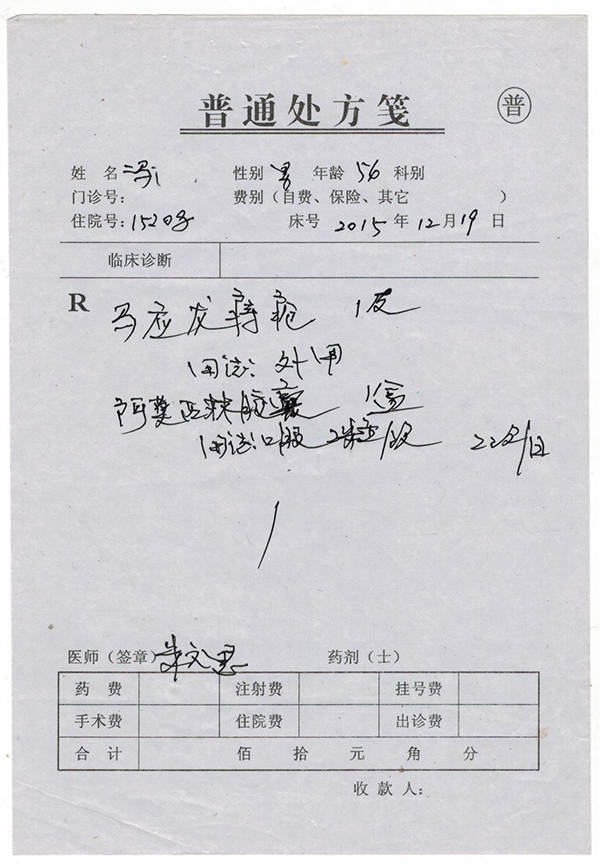 普通处方笺
普
姓 名 性别 男 年龄 56 科别
门诊号: 费别（自费、保险、其它 ）
住院号: 床号 2015 年 12 月 19 日
临床诊断
R
马应龙痔疮 1支
用法: 外用
阿莫西林胶囊 1盒
用法: 口服 2粒/次 2次/日
医师（签章） 药剂（士）
药 费 注射费 挂号费
手术费 住院费 出诊费
合 计 佰 拾 元 角 分
收 款 人: